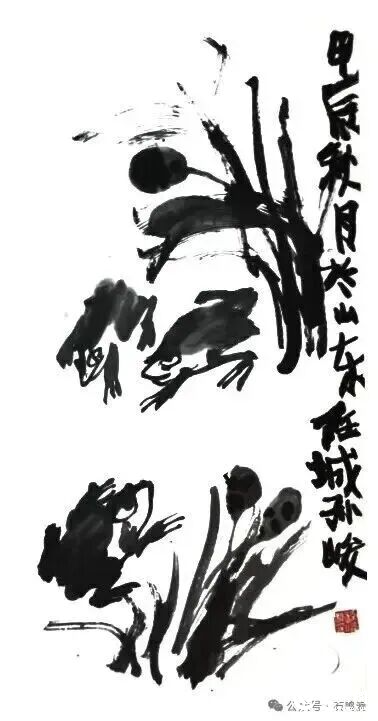 甲辰秋月于山东任城孙峻
公众号·石鸭瓷